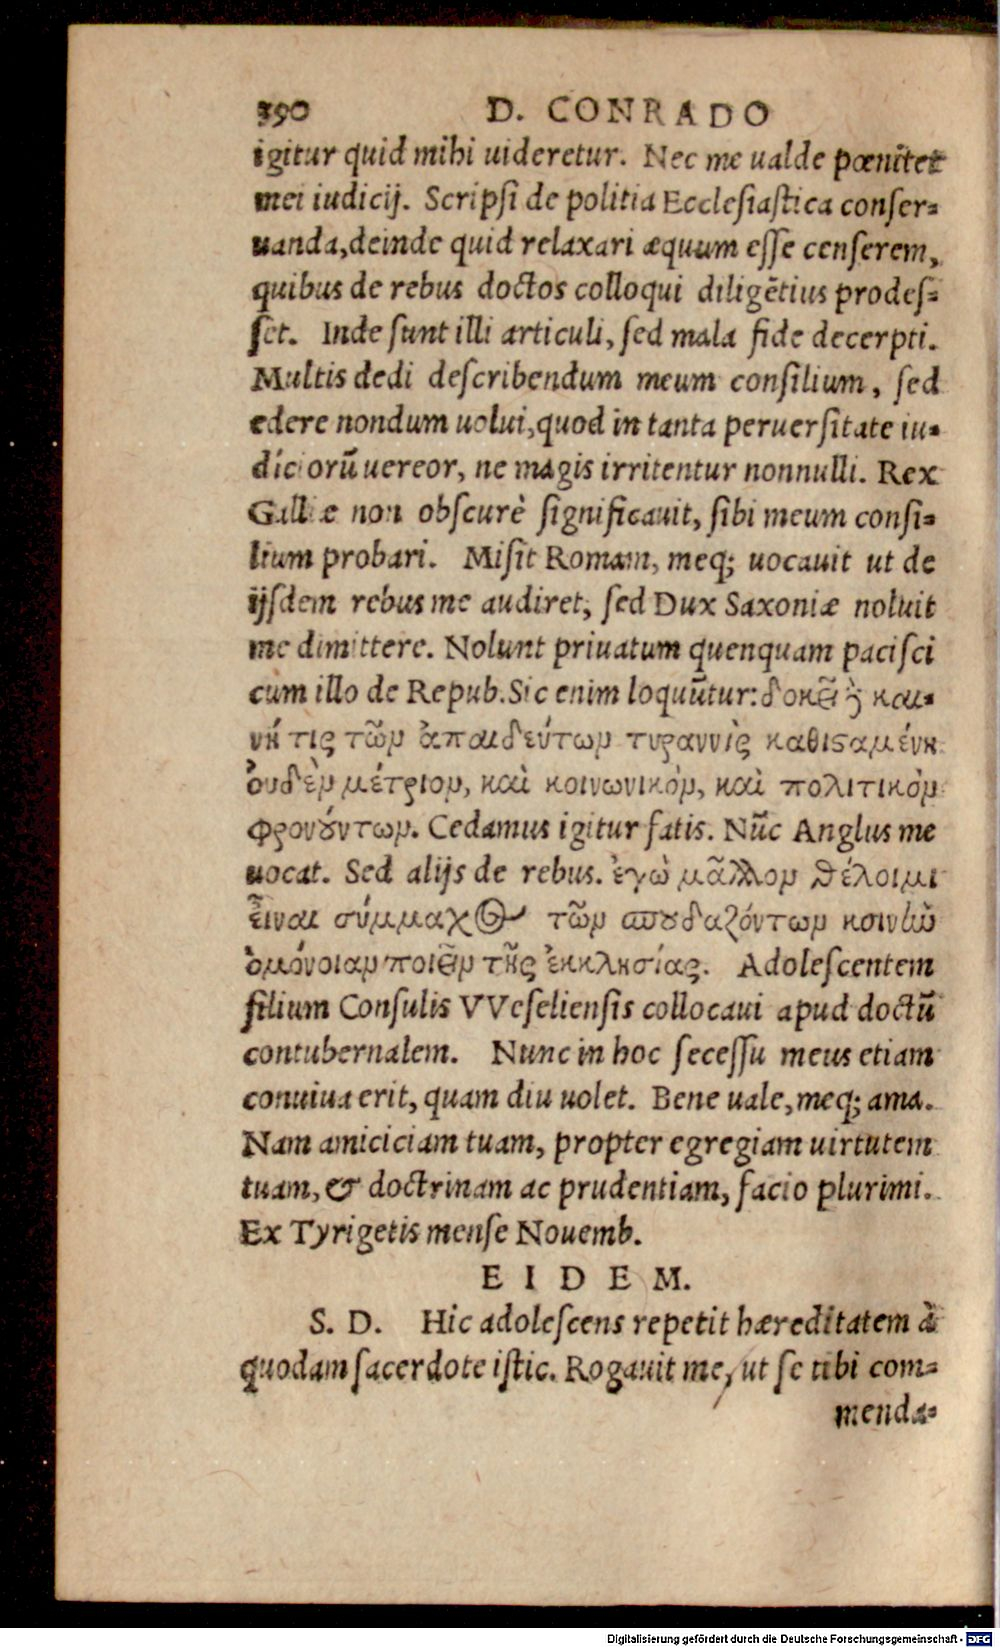 390 D. CONRADO
igitur quid mihi uideretur. Nec me ualde pœnitet
mei iudicij. Scripſi de politia Eccleſiaſtica conſer-
uanda, deinde quid relaxari æquum eſſe cenſerem,
quibus de rebus doctos colloqui diligẽtius prodeſ-
ſet. Inde ſunt illi articuli, ſed mala fide decerpti.
Multis dedi deſcribendum meum conſilium, ſed
edere nondum uolui, quod in tanta peruerſitate iu-
diciorũ uereor, ne magis irritentur nonnulli. Rex
Galliæ non obſcurè ſignificauit, ſibi meum conſi-
lium probari. Miſit Romam, meq; uocauit ut de
ijſdem rebus me audiret, ſed Dux Saxoniæ noluit
me dimittere. Nolunt priuatum quenquam paciſci
cum illo de Repub. Sic enim loquũtur: δοκεῖ γὸ και-
νή τις τῶν ἀπαιδεύτων τυραννὶς καθισαμένη
ὀυδὲν μέτριον, καὶ κοινωνικὸν, καὶ πολιτικὸν
φρονούντων. Cedamus igitur fatis. Nũc Anglus me
uocat. Sed alijs de rebus. ἐγὼ μᾶλλον θέλοιμι
εἶναι σύμμαχος τῶν σπουδαζόντων κοινὴν
ὁμόνοιαν ποιεῖν τῆς ἐκκλησίας. Adoleſcentem
filium Conſulis VVeſelienſis collocaui apud doctũ
contubernalem. Nunc in hoc ſeceſſu meus etiam
conuiua erit, quam diu uolet. Bene uale, meq; ama.
Nam amiciciam tuam, propter egregiam uirtutem
tuam, & doctrinam ac prudentiam, facio plurimi.
Ex Tyrigetis menſe Nouemb.
EIDEM.
S. D. Hic adoleſcens repetit hæreditatem à
quodam ſacerdote iſtic. Rogauit me, ut ſe tibi com-
menda-
Digitalisierung gefördert durch die Deutsche Forschungsgemeinschaft - DFG